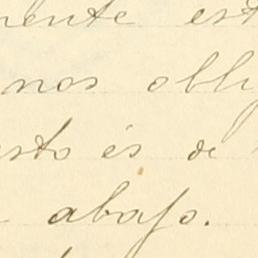 mente est
nos obli
esto és de
abajo.